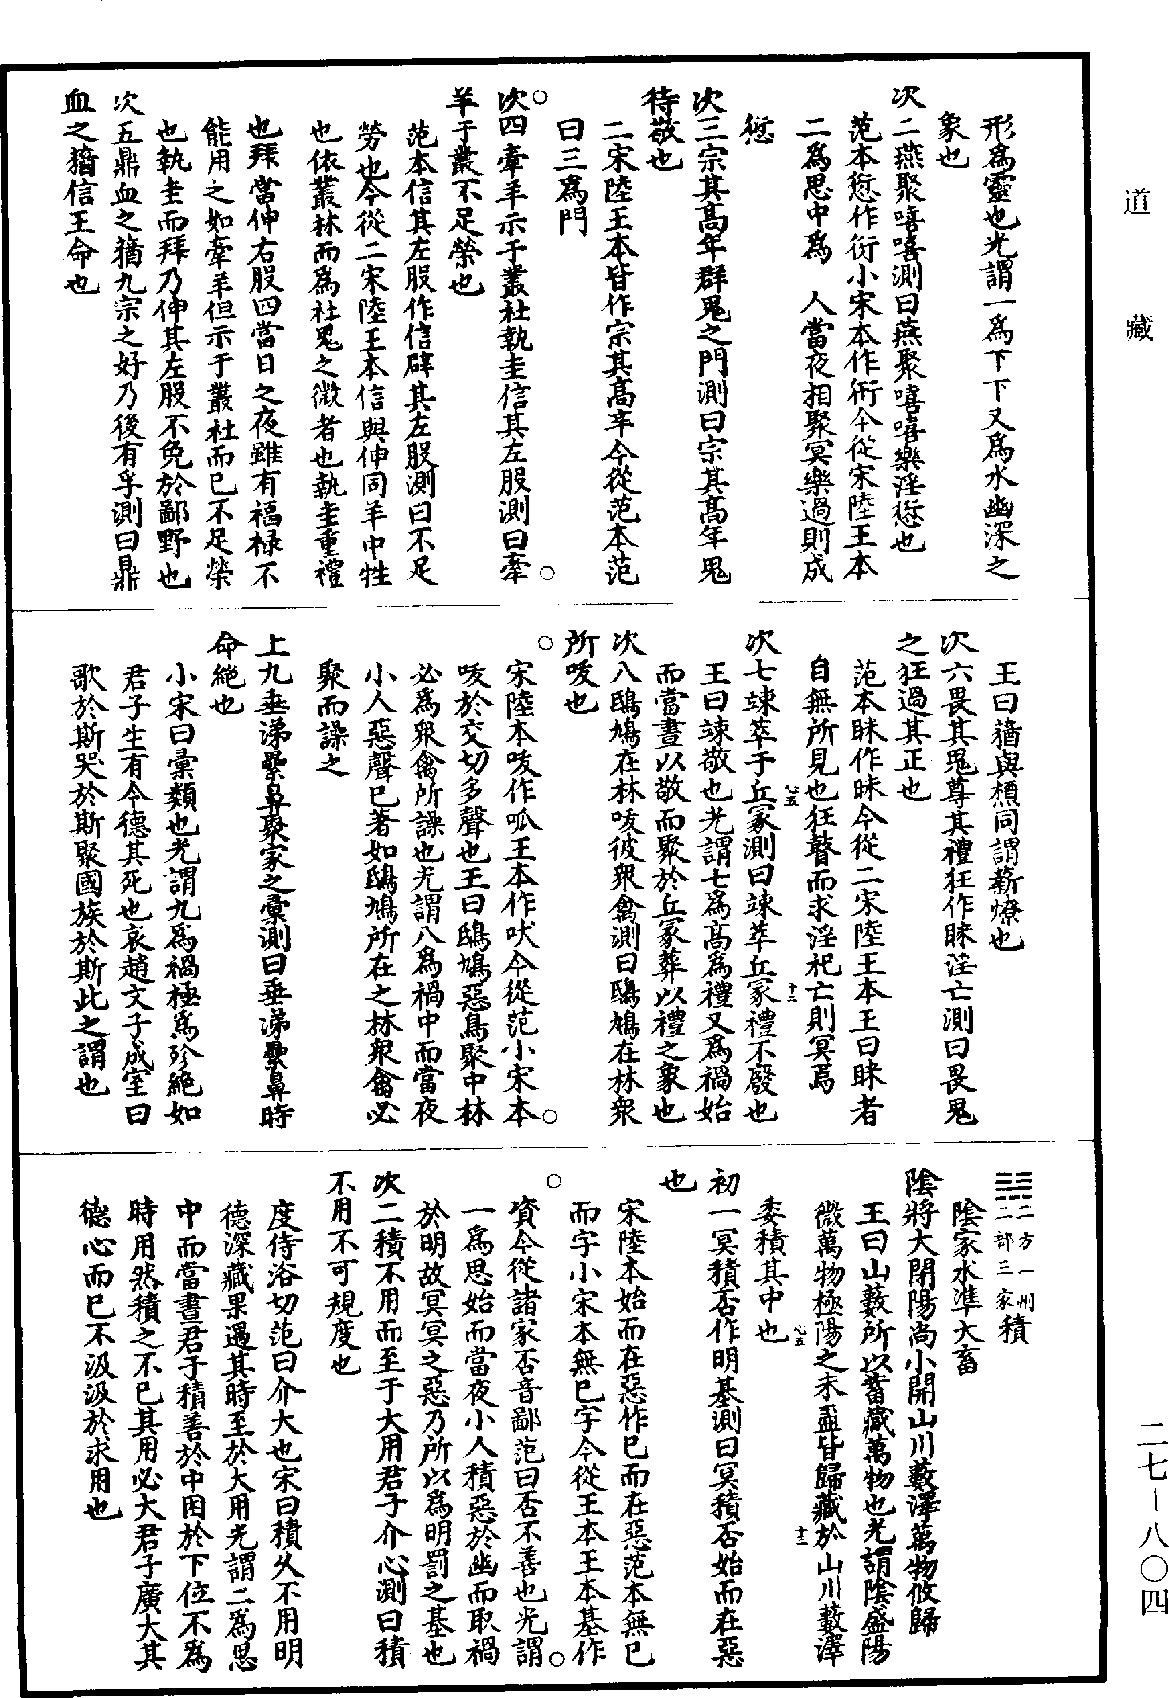 道藏
形為靈也光謂一為下下又為水幽深之
象也
次二燕聚嘻嘻測曰燕聚嘻嘻樂淫愆也
范本愆作衍小宋本作衎今從宋陸王本
二為思中為　人當夜相聚冥樂過則成
愆
次三宗其高年群鬼之門測曰宗其高年鬼
待敬也
二宋陸王本皆作宗其高年今從范本范
曰三為門
次四牽羊示于叢社執圭信其左股測曰牽
羊于叢不足榮也
范本信其左股作信辟其左股測曰不足
勞也今從二宋陸王本信與伸同羊中牲
也依叢林而為社鬼之微者也執圭重禮
也拜當伸右股四當日之夜雖有福祿不
能用之如牽羊但示于叢社而已不足榮
也執圭而拜乃伸其左股不免於鄙野也
次五鼎血之𥠖九宗之好乃後有孚測曰鼎
血之𥠖信王命也
王曰𥠖與槱同謂薪燎也
次六畏其鬼尊其禮狂作眛淫亡測曰畏鬼
之狂過其正也
范本眛作昧今從二宋陸王本王曰眛者
自無所見也狂瞽而求淫祀亡則冥焉
次七竦萃于丘冢測曰竦萃丘冢禮不廢也
王曰竦敬也光謂七為高為禮又為禍始
而當晝以敬而聚於丘冢葬以禮之象也
次八鴟鳩在林咬彼眾禽測曰鴟鳩在林眾
所咬也
宋陸本咬作呱王本作吠今從范小宋本
咬於交切多聲也王曰鴟鳩惡鳥聚中林
必為眾禽所譟也光謂八為禍中而當夜
小人惡聲已著如鴟鳩所在之林眾禽必
聚而譟之
上九垂涕纍鼻聚家之彙測曰垂涕纍鼻時
命絕也
小宋曰彙類也光謂九為禍極為殄絕如
君子生有令德其死也哀趙文子成室曰
歌於斯哭於斯聚國族於斯此之謂也
二方一州二部三家積
陰家水準大畜
陰將大閉陽尚小開山川藪澤萬物攸歸
王曰山藪所以蓄藏萬物也光謂陰盛陽
微萬物極陽之末盃皆歸藏於山川藪澤
委積其中也
初一冥積否作明基測曰冥積否始而在惡
也
宋陸本始而在惡作已而在惡范本無已
而字小宋本無已字今從王本王本基作
資今從諸家否音鄙范曰否不善也光謂
一為思始而當夜小人積惡於幽而取禍
於明故冥冥之惡乃所以為明罰之基也
次二積不用而至于大用君子介心測曰積
不用不可規度也
度侍浴切范曰介大也宋曰積久不用明
德深藏果遇其時至於大用光謂二為思
中而當晝君子積善於中困於下位不為
時用然積之不已其用必大君子廣大其
德心而已不汲汲於求用也
二七－八〇四